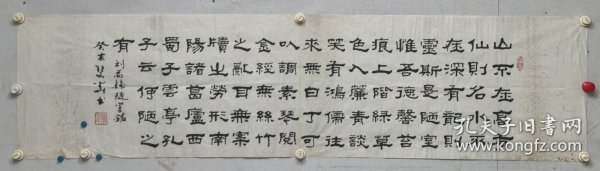 山不在高有
仙則名水不
在深有龍則
靈斯是陋室
惟吾德馨苔
痕上階綠草
色入簾青談
笑有鴻儒往
來無白丁可
以調素琴閱
金經無絲竹
之亂耳無案
牘之勞形南
陽諸葛廬西
蜀子雲亭孔
子云何陋之
有
劉禹錫陋室銘
癸亥 書
孔夫子旧书网
www.kongfz.com